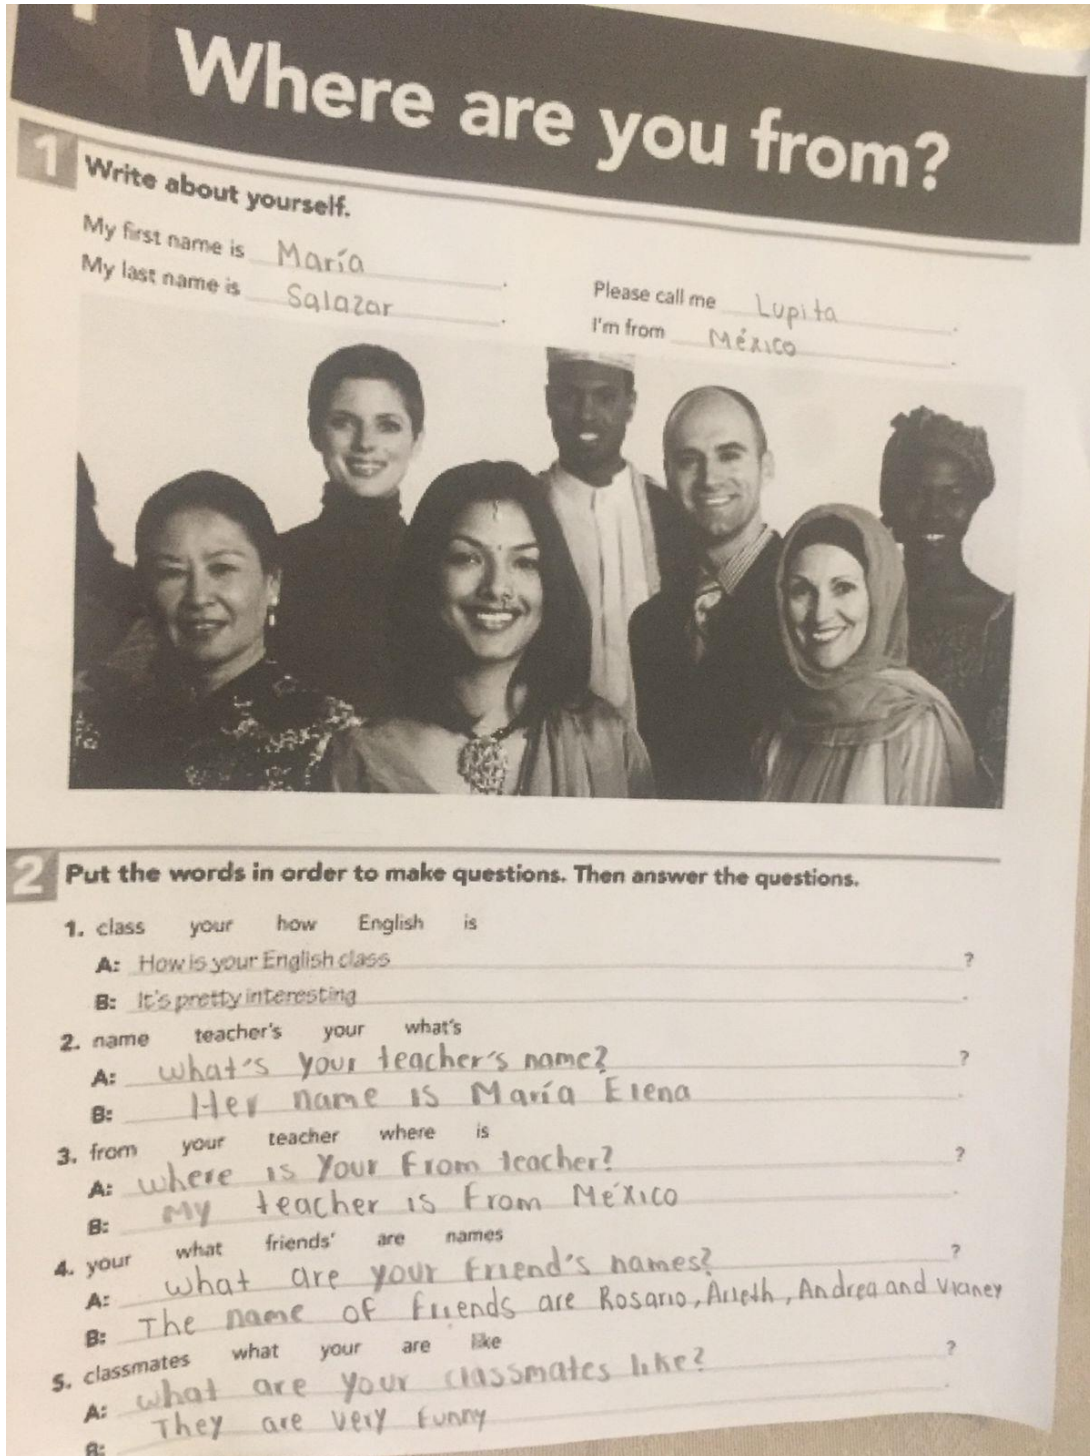 Where are you from?
1 Write about yourself.
My first name is María.
My last name is Salazar.
Please call me Lupita.
I'm from México.
2 Put the words in order to make questions. Then answer the questions.
1. class your how English is
A: How is your English class?
B: It's pretty interesting.
2. name teacher's your what's
A: what's your teacher's name? ?
B: Her name is María Elena.
3. from your teacher where is
A: where is your From teacher? ?
B: My teacher is From México.
4. your what friends' are names
A: what are your Friend's names? ?
B: The name of friends are Rosario, Arleth, Andrea and Vianey
5. classmates what your are like
A: what are your classmates like? ?
B: They are very Funny.